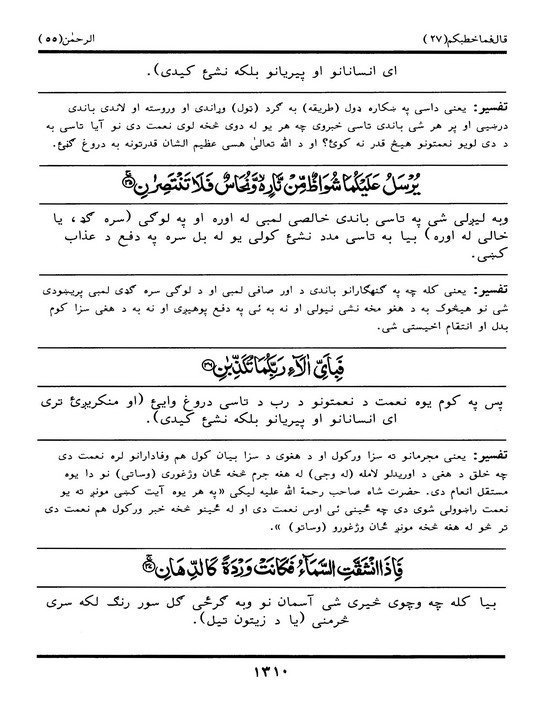 قال فما خطبکم (۲۷) الرحمٰن (۵۵)
ای انسانانو او پیریانو بلکه نشئ کیدی).
تفسیر: یعنی داسی په ښکاره ډول (طریقه) به گرد (ټول) وړاندی او وروسته او لاندی باندی
درڼیی او پر هر شی باندی تاسی خبروی چه هر یو له دوی څخه لوی نعمت دی نو آیا تاسی به
د دی لویو نعمتونو هیڅ قدر نه کوئ؟ او د الله تعالیٰ هسی عظیم الشان قدرتونه به دروغ گڼئ.
یُرْسَلُ عَلَیْکُمَا شُوَاظٌ مِّنْ نَّارٍ وَّنُحَاسٌ فَلَا تَنْتَصِرٰنِ ﴿۳۵﴾
وبه لیږلی شی په تاسی باندی خالصی لمبی له اوره او په لوگی (سره گډ، یا
خالی له اوره) بیا به تاسی مدد نشئ کولی یو له بل سره په دفع د عذاب
کښی.
تفسیر: یعنی کله چه په گنهگارانو باندی د اور صافی لمبی او د لوگی سره گډی لمبی پریښودی
شی نو هیڅوک به د هغو مخه نشی نیولی او نه به ئی په دفع پوهیږی او نه به د هغی سزا کوم
بدل او انتقام اخیستی شی.
فَبِاَیِّ اٰلَآءِ رَبِّکُمَا تُکَذِّبٰنِ ﴿۳۶﴾
پس په کوم یوه نعمت د نعمتونو د رب د تاسی دروغ وایئ (او منکریږئ تری
ای انسانانو او پیریانو بلکه نشئ کیدی).
تفسیر: یعنی مجرمانو ته سزا ورکول او د هغوی د سزا بیان کول هم وفادارانو لره نعمت دی
چه خلق د هغی د اوریدلو لامله (له وجی) له هغه جرم څخه ځان وژغوری (وساتی) نو دا یوه
مستقل انعام دی. حضرت شاه صاحب رحمة الله علیه لیکی «په هر یوه آیت کښی مونږ ته یو
نعمت راښوولی شوی دی چه ځینی ئی اوس نعمت دی او له ځینو څخه خبر ورکول هم نعمت دی
تر څو له هغه څخه مونږ ځان وژغورو (وساتو) ».
فَاِذَا انْشَقَّتِ السَّمَآءُ فَکَانَتْ وَرْدَةً کَالدِّهَانِ ﴿۳۷﴾
بیا کله چه وچوی څیری شی آسمان نو وبه گرځی گل سور رنگ لکه سری
څرمنی (یا د زیتون تیل).
۱۳۱۰